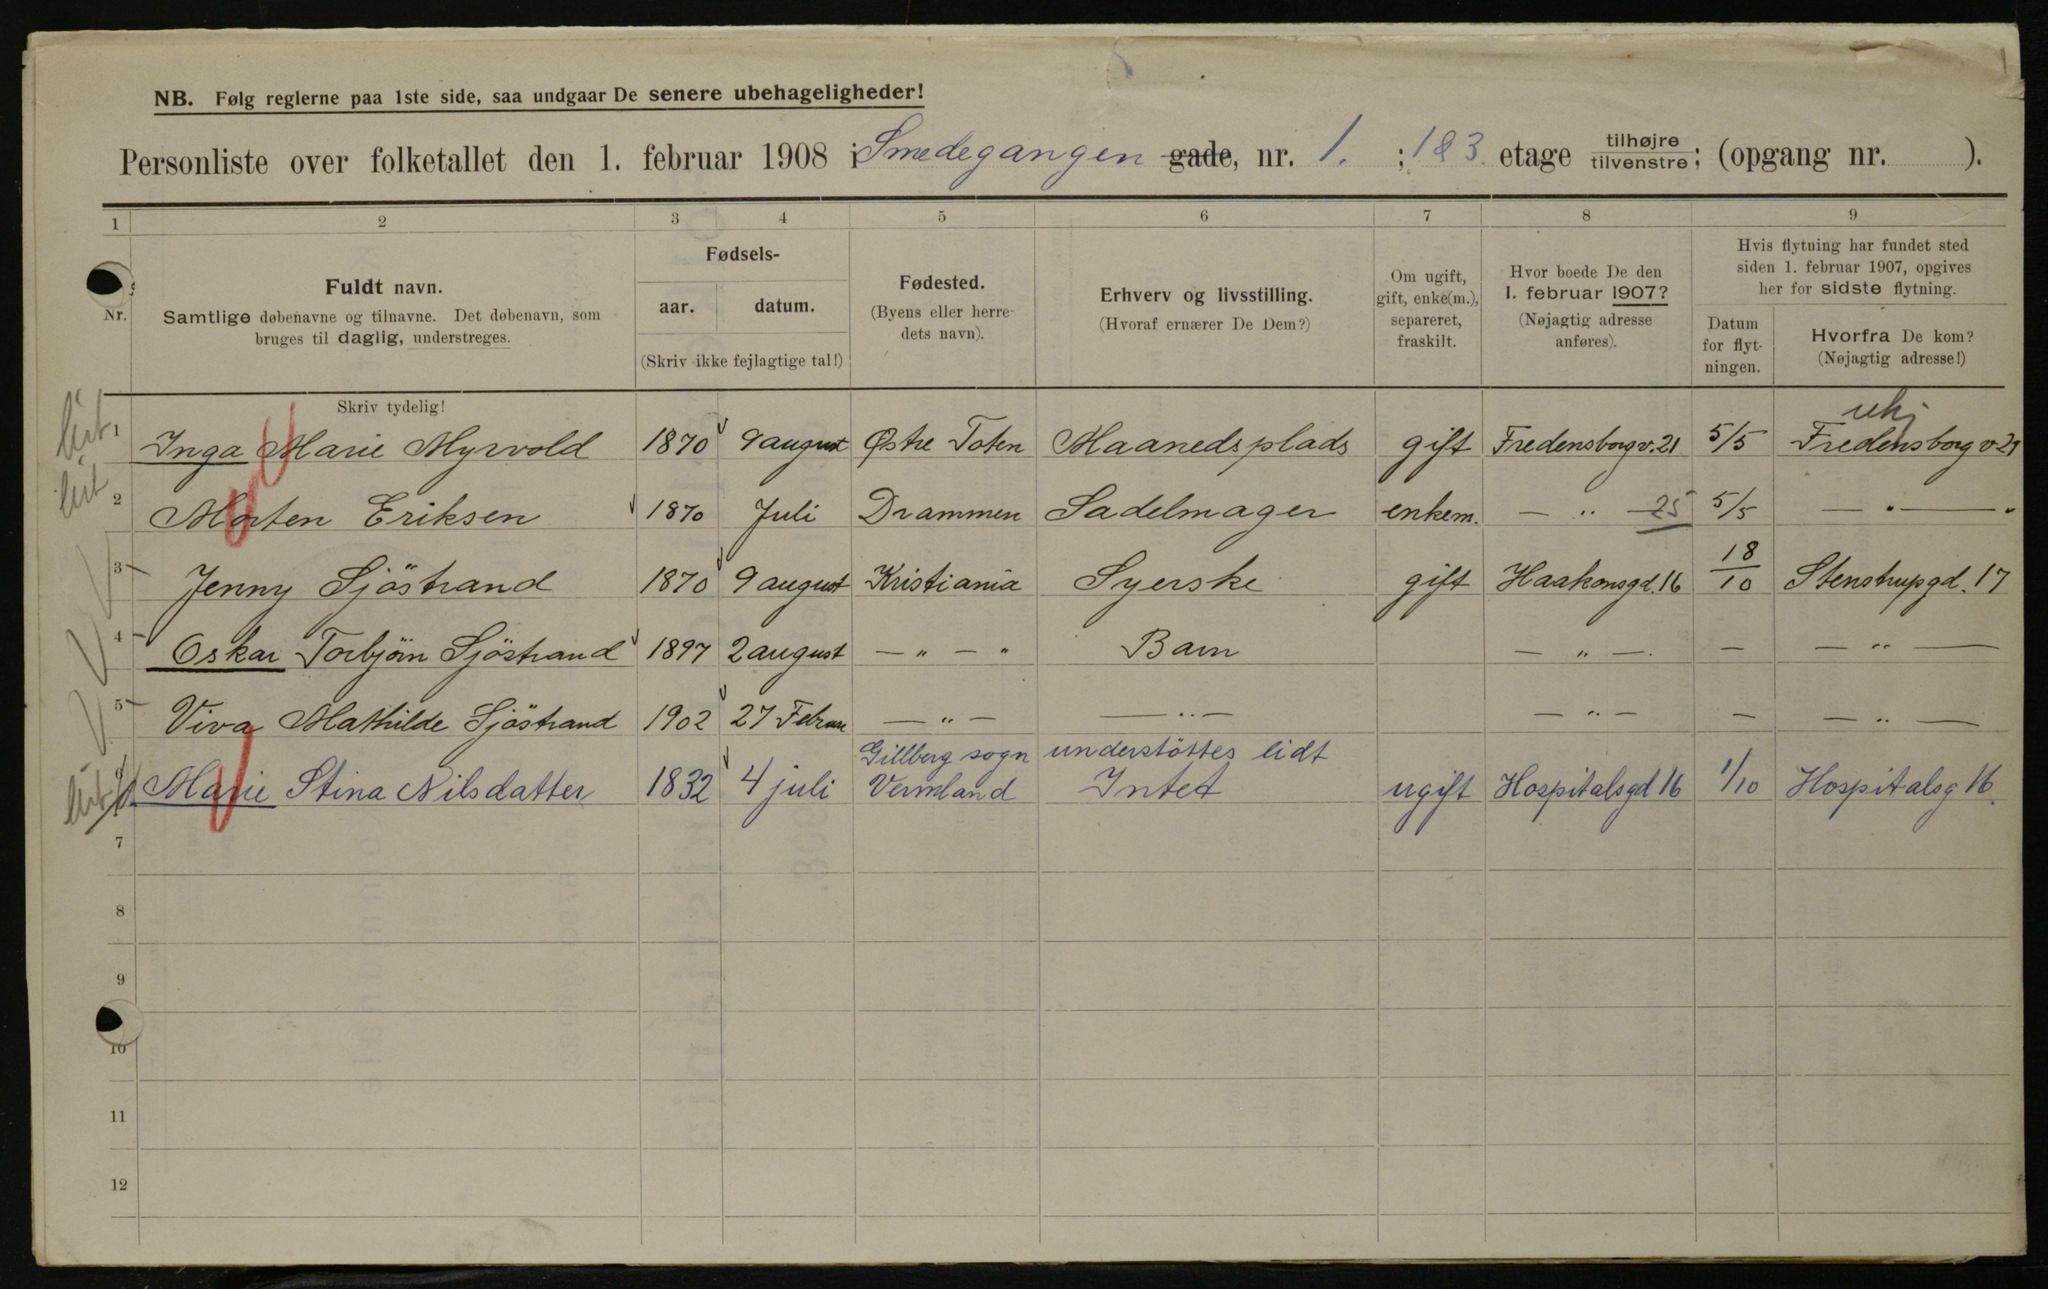 NB. Følg reglerne paa 1ste side, saa undgaar De senere ubehageligheder!
Personliste over folketallet den 1. februar 1908 i Smedegangen gade, nr. 1. ; 1&3. etage tilhøjre tilvenstre; (opgang nr. ).
1 2 3 4 5 6 7 8 9
Nr.
Fuldt navn.
Samtlige døbenavne og tilnavne. Det døbenavn, som
bruges til daglig, understreges.
Skriv tydelig!
Fødsels-
aar. datum.
(Skriv ikke fejlagtige tal!)
Fødested.
(Byens eller herre-
dets navn).
Erhverv og livsstilling.
(Hvoraf ernærer De Dem?)
Om ugift,
gift, enke(m.),
separeret,
fraskilt.
Hvor boede De den
1. februar 1907?
(Nøjagtig adresse
anføres).
Hvis flytning har fundet sted
siden 1. februar 1907, opgives
her for sidste flytning.
Datum
for flyt-
ningen.
Hvorfra De kom?
(Nøjagtig adresse!)
1 Inga Marie Myrvold 1870 9 august Østre Toten Maanedsplads gift Fredensborgv. 21 5/5 Fredensborg v 21
2 Morten Eriksen 1870 Juli Drammen Sadelmager enkem. — " — 25 5/5 — " — "
3 Jenny Sjöstrand 1870 9 august Kristiania Syerske gift Haakonsgd. 16 18/10 Stenstrupgd. 17
4 Oskar Torbjörn Sjöstrand 1897 2 august — " — " Barn — " — . — — " —
5 Viva Mathilde Sjöstrand 1902 27 Februar — " — — " — — " — — — " —
Gillberg sogn understöttes lidt
Marie Stina Nilsdatter 1832 4 juli Vermland Intet ugift Hospitalsgd 16 1/10 Hospitalsg 16.
7
8
9
10
11
12